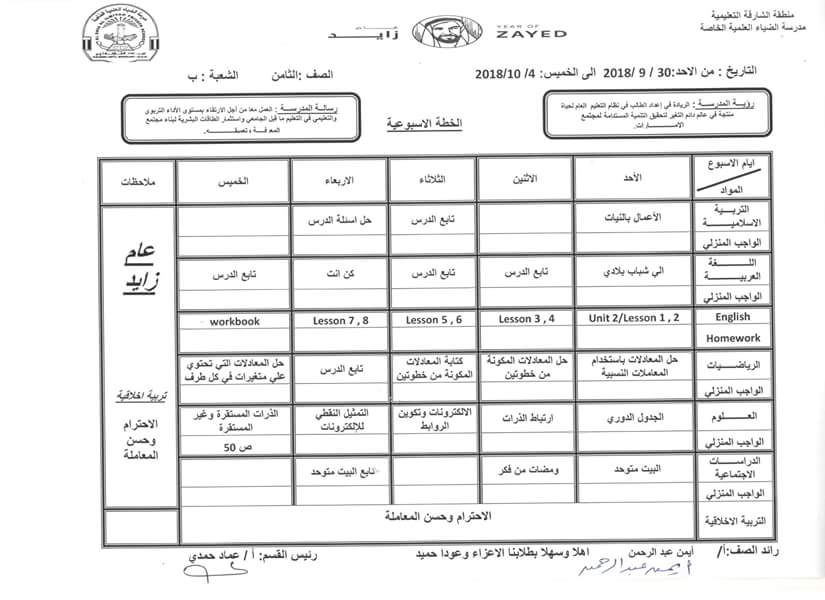 منطقة الشارقة التعليمية
مدرسة الضياء العلمية الخاصة
عام زايد
YEAR OF
ZAYED
التاريخ : من الاحد:30 / 9 /2018 الى الخميس: 4/ 2018/10
الصف: الثامن
الشعبة : ب
رؤية المدرسة : الريادة في إعداد الطالب في نظام التعليم العام لحياة
منتجة في عالم دائم التغير لتحقيق التنمية المستدامة لمجتمع
الامـــــــارات.
الخطة الاسبوعية
رسالة المدرسة : العمل معا من أجل الارتقاء بمستوى الأداء التربوي
والتعليمي في التعليم ما قبل الجامعي واستثمار الطاقات البشرية لبناء مجتمع
ايام الاسبوع
المواد
الأحد
الاثنين
الثلاثاء
الاربعاء
الخميس
ملاحظات
التربـيـة
الاسلاميـــة
الأعمال بالنيات
تابع الدرس
حل اسئلة الدرس
الواجب المنزلي
اللـــغة
العربيـــة
الي شباب بلادي
تابع الدرس
تابع الدرس
كن انت
تابع الدرس
الواجب المنزلي
English
Unit 2/Lesson 1 , 2
Lesson 3 , 4
Lesson 5 , 6
Lesson 7 , 8
workbook
Homework
الرياضـيـات
حل المعادلات باستخدام
المعاملات النسبية
حل المعادلات المكونة
من خطوتين
كتابة المعادلات
المكونة من خطوتين
تابع الدرس
حل المعادلات التي تحتوي
علي متغيرات في كل طرف
الواجب المنزلي
العـــــلوم
الجدول الدوري
ارتباط الذرات
الالكترونات وتكوين
الروابط
التمثيل النقطي
للإلكترونات
الذرات المستقرة وغير
المستقرة
الواجب المنزلي
ص 50
الدراســات
الاجتماعية
البيت متوحد
ومضات من فكر
تابع البيت متوحد
الواجب المنزلي
التربية الاخلاقية
الاحترام وحسن المعاملة
عام
زايد
تربية اخلاقية
الاحترام
وحسن
المعاملة
رائد الصف:أ/ أيمن عبد الرحمن
اهلا وسهلا بطلابنا الاعزاء وعودا حميد
رئيس القسم: أ / عماد حمدي
أيمن عبد الرحمن